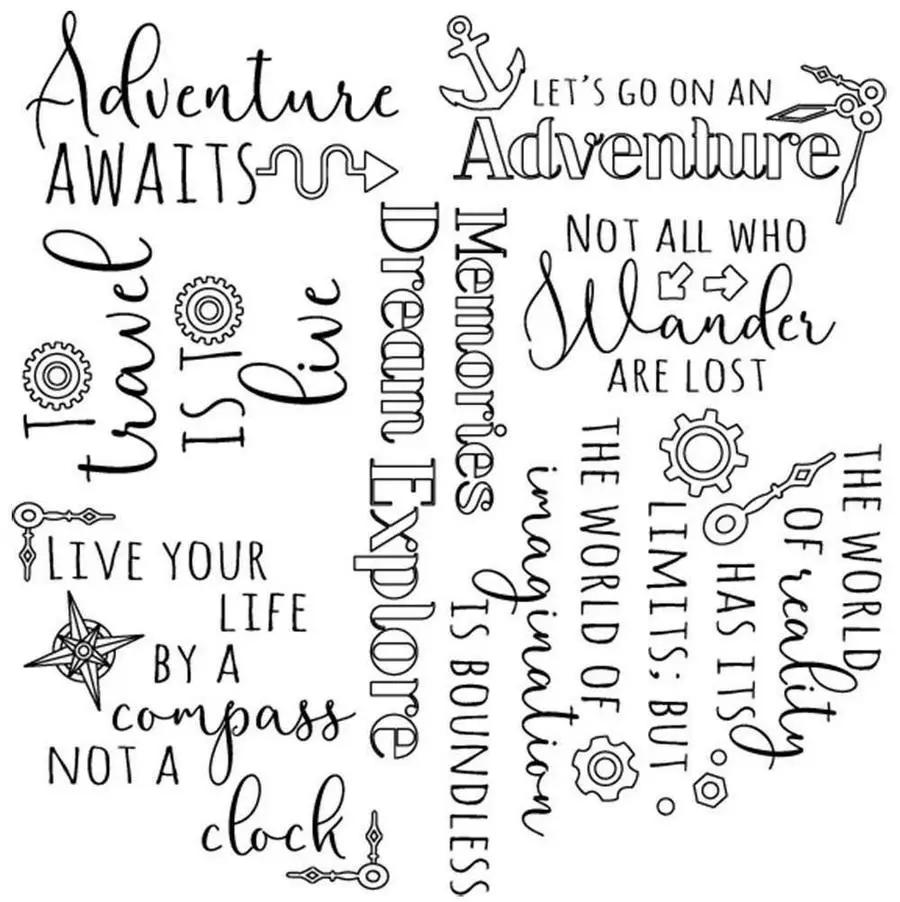 Adventure
AWAITS
LET'S GO ON AN
Adventure
NOT ALL WHO
Wander
ARE LOST
TO
travel
IS TO
live
Dream
Memories
Explore
LIVE YOUR
LIFE
BY A
compass
NOT A
clock
THE WORLD
OF reality
HAS ITS
LIMITS; BUT
THE WORLD OF
imagination
IS BOUNDLESS